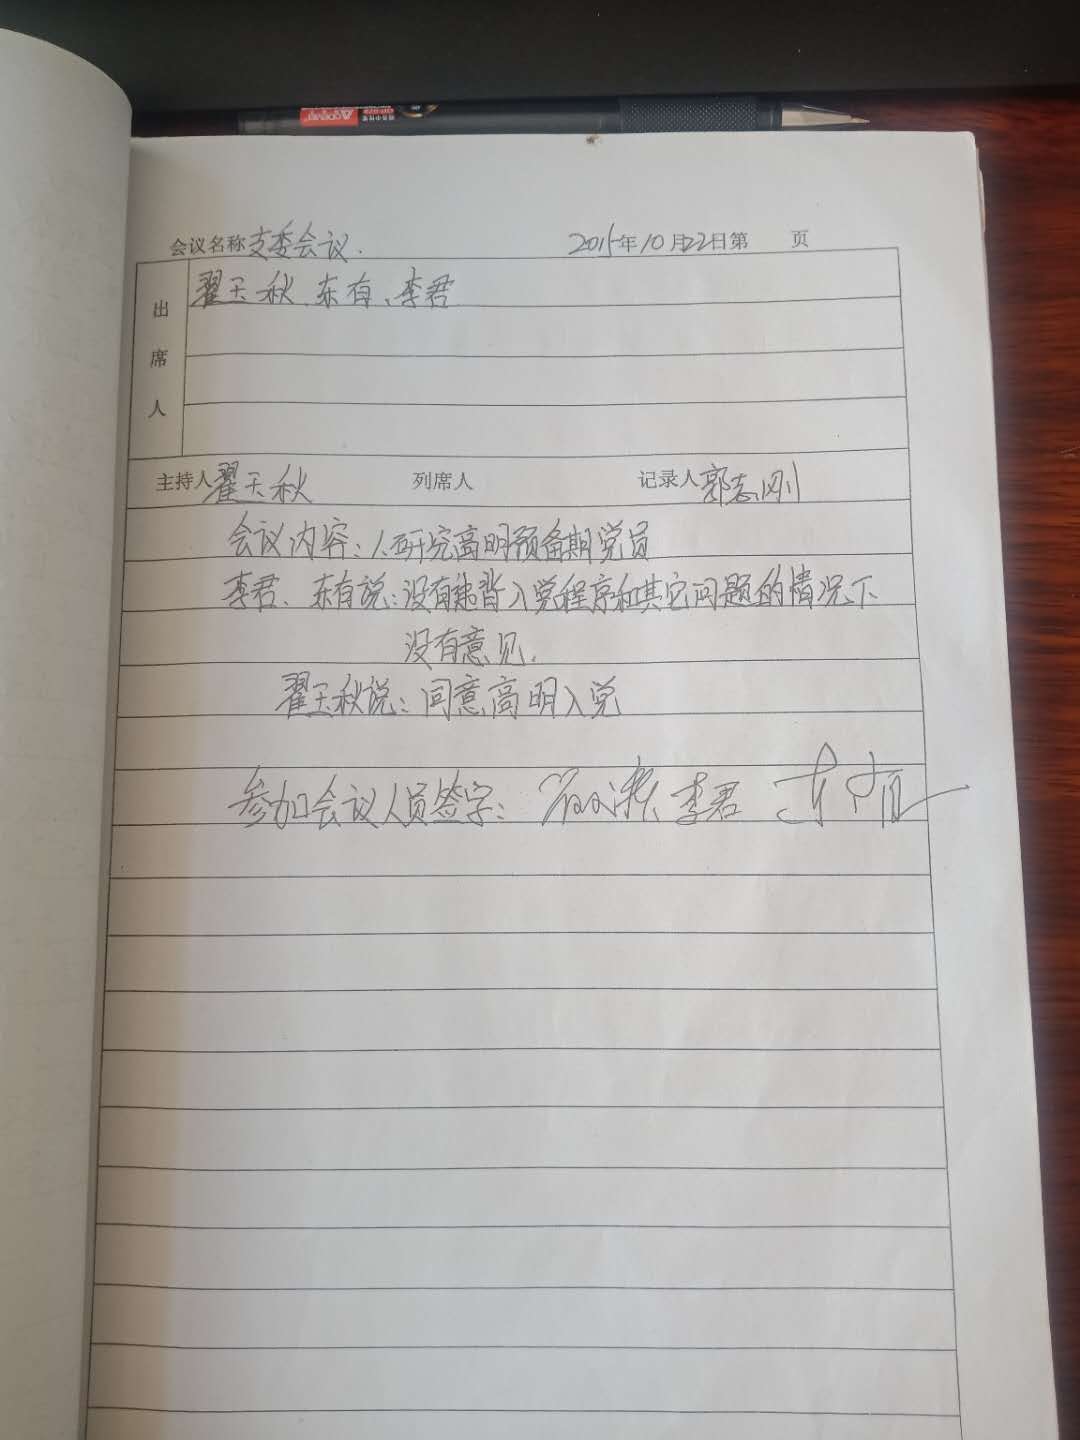 会议名称 支委会议. 2015年10月22日第 页
出席人 翟玉秋、东有、李君
主持人 翟玉秋 列席人 记录人 郭志刚
会议内容：1、研究高明预备期党员
李君、东有说：没有违背入党程序和其它问题的情况下
没有意见.
翟玉秋说：同意高明入党
参加会议人员签字： 李君